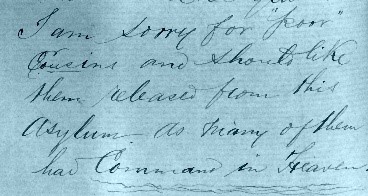 I am sorry for "poor"
Cousins and should like
them released from this
asylum as many of them
had Command in Heaven.